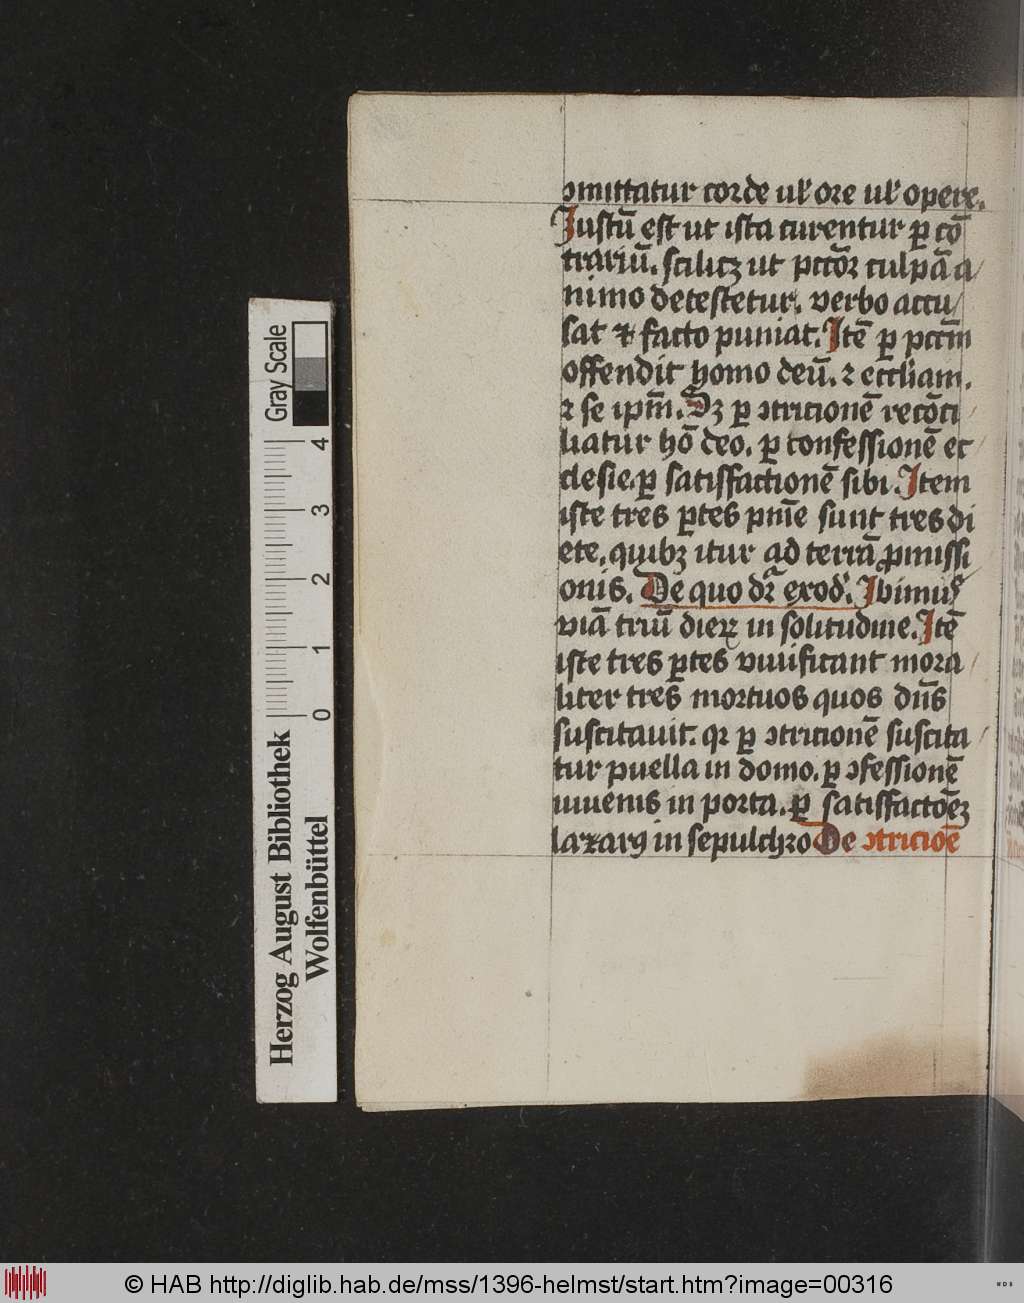 ꝯmittatur corde uł ore uł opere.
Justū est ut ista curentur ꝑ cō
trariū. scilicꝫ ut pctōꝝ culpā a/
nimo detestetur. verbo accu/
sat ⁊ facto puniat. Itē ꝑ pctm̄
offendit homo deū. ⁊ eccłiam.
⁊ se ipm̄. Sꝫ ꝑ ꝯtricionē recōci/
liatur hō deo. ꝑ confessionē ec/
clesie. ꝑ satisfactionē sibi. Item
iste tres ꝑtes pnīe sunt tres di
ete. quibꝫ itur ad terrā ꝓmissi
onis. De quo dr̄ exod̓. Ibimus
viā triū dieꝝ in solitudine. Itē
iste tres ꝑtes viuificant mora/
liter tres mortuos quos dn̄s
suscitauit. qꝛ ꝑ ꝯtricionē suscita/
tur puella in domo. ꝑ ꝯfessionē
iuuenis in porta. ꝑ satisfactōeꝫ
lazarꝰ in sepulchro De ꝯtricioē
Gray Scale
4
3
2
1
0
Herzog August Bibliothek
Wolfenbüttel
© HAB http://diglib.hab.de/mss/1396-helmst/start.htm?image=00316
WDB